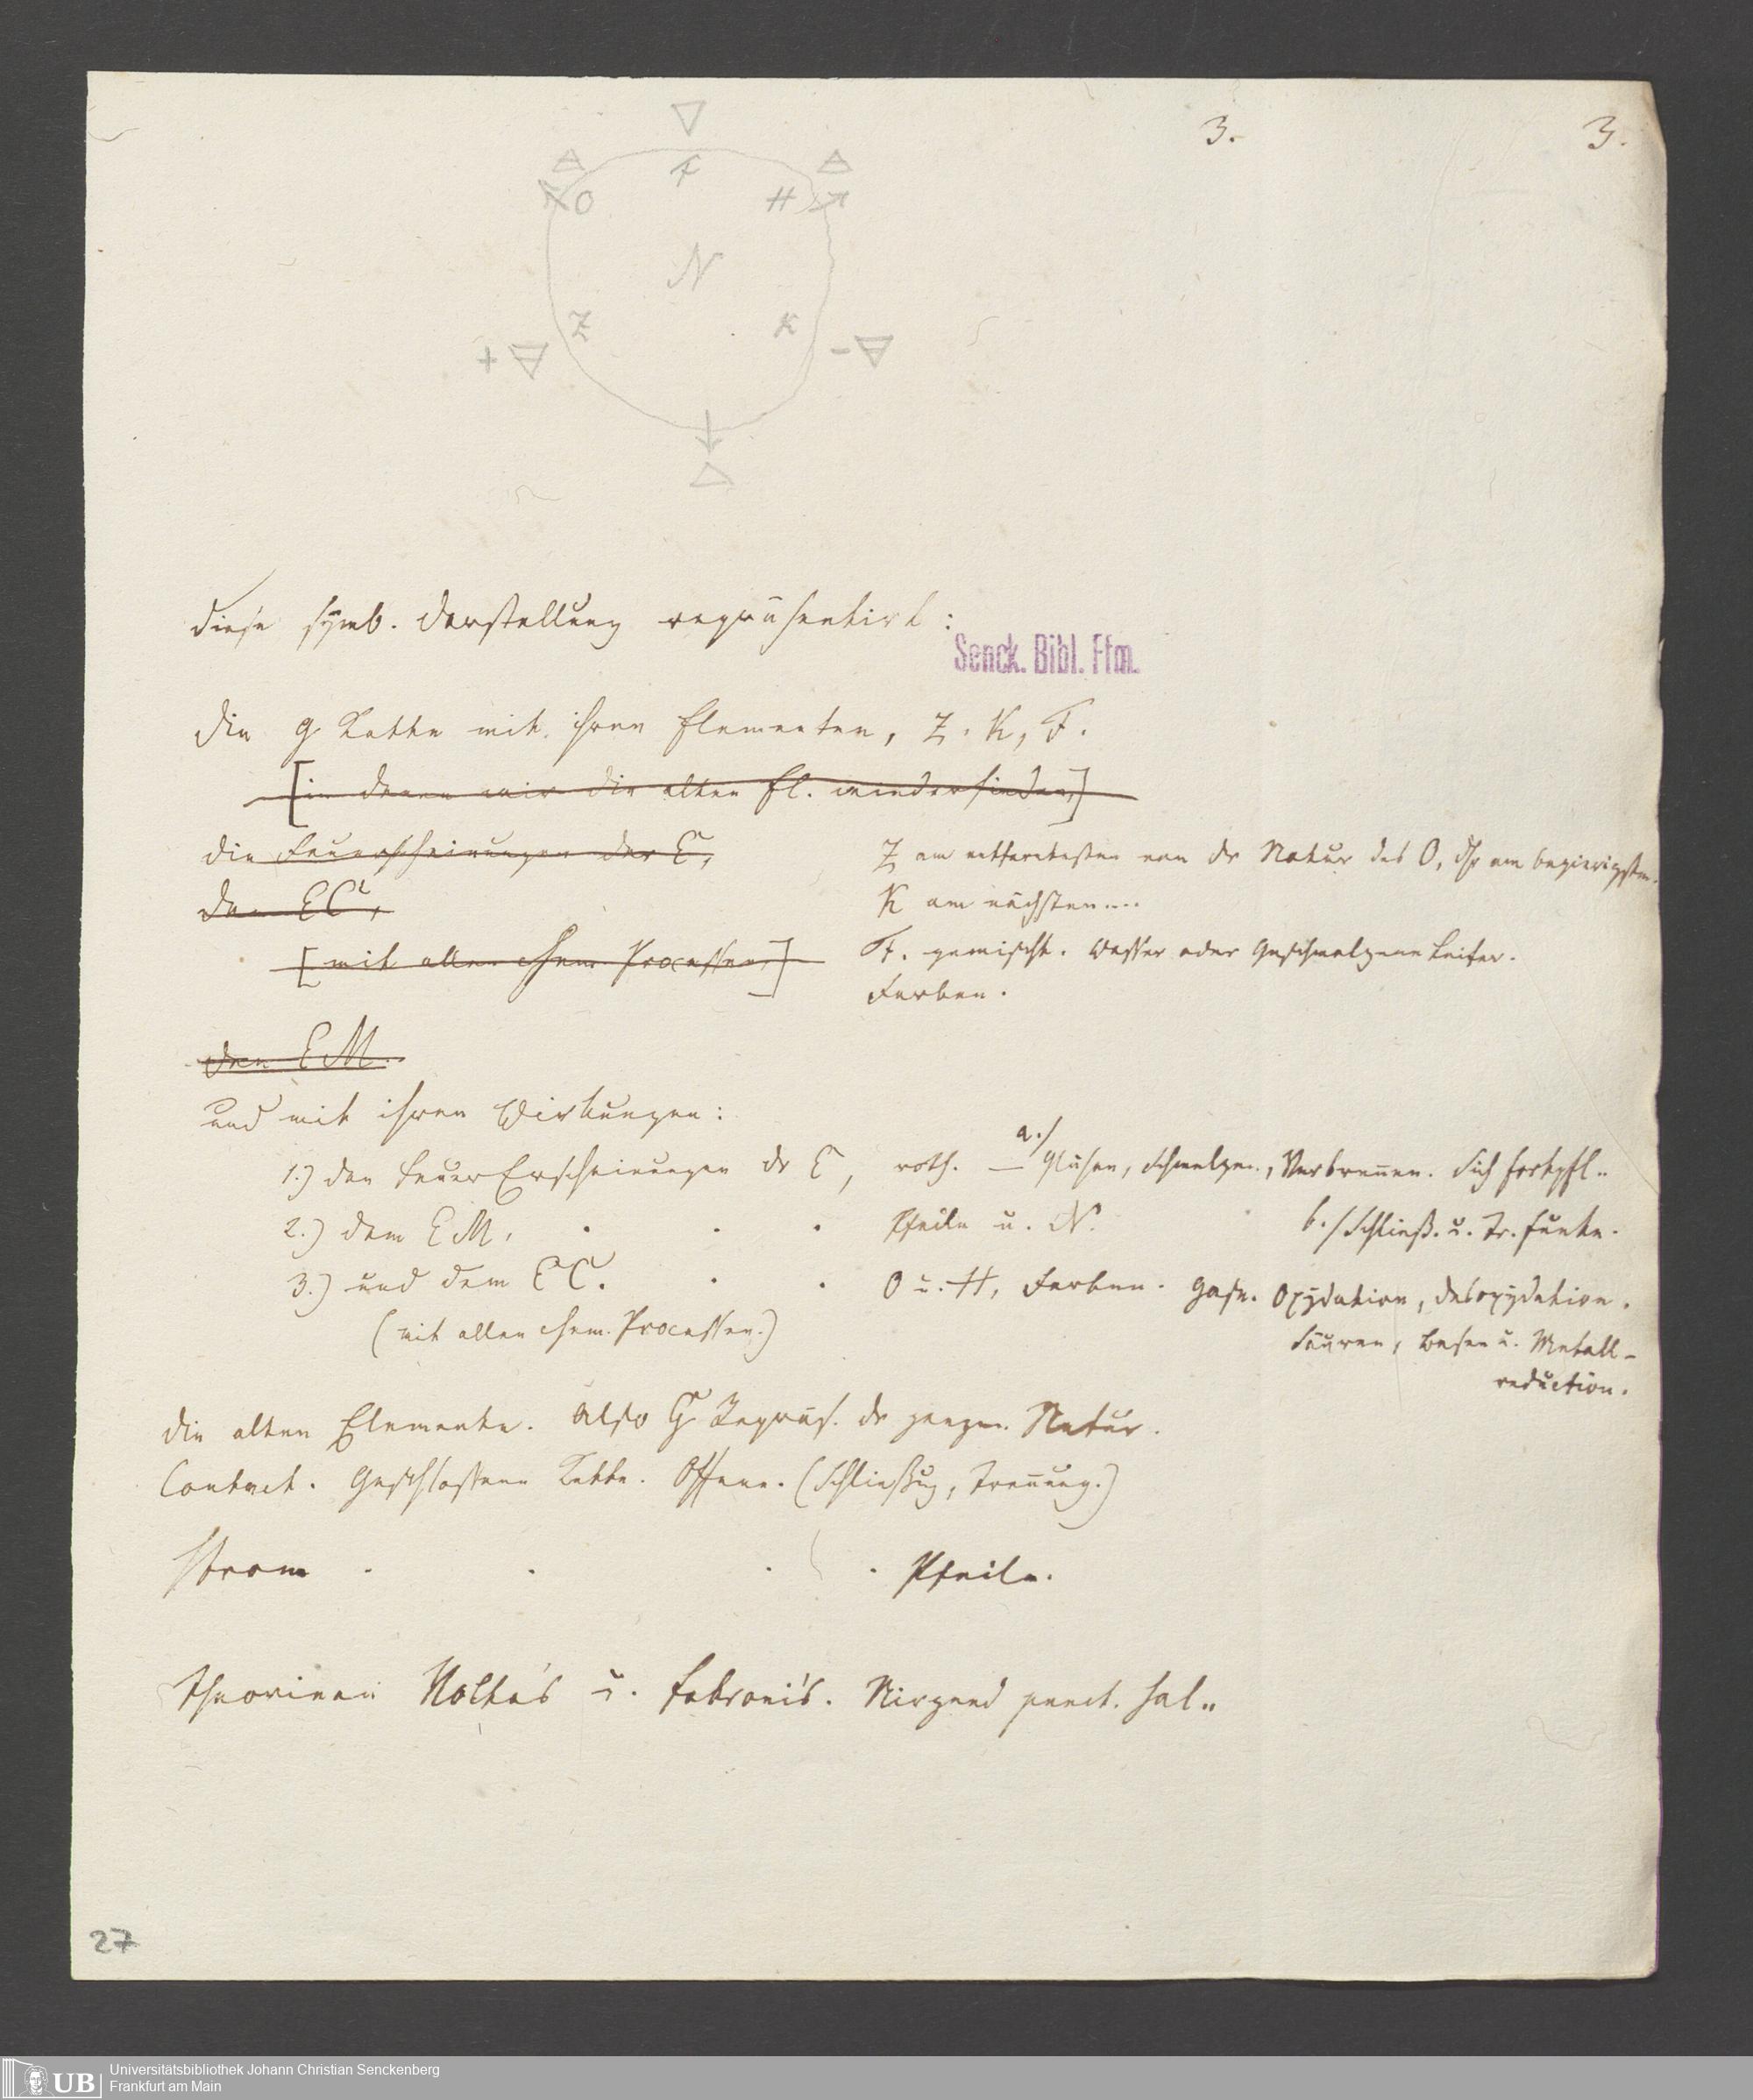 3. 3.
F
O H
N
Z K
+ -
Diese symb. Darstellung repräsentirt:
Senck. Bibl. Ffm.
Die g Kette mit ihren Elementen, Z. K, F.
[in denen wir die alten El. wiederfinden]
die Feuerscheinungen der E,
Z am entferntesten von dr Natur des O, am begierigsten.
den EC,
K am nächsten....
[mit allen chem. Processen,]
F. gemischt. Wasser oder Geschmolzene Leiter.
Farben.
den EM.
und mit ihren Wirkungen:
1.) den FeuerErscheinungen dr E, roth. — a./ Glühen, Schmelzen, Verbrennen. Sich fortpfl..
2.) dem EM, . . . Pfeile u. N. b./ Schließ. u. Tr. Funke.
3.) und dem EC. . . O u. H, Farben. Gase. Oxydation, Desoxydation.
(mit allen chem. Processen.) Säuren, Basen u. Metall-
reduction.
Die alten Elemente. Also G Repräs. dr ganzen Natur.
Contact. Geschlossene Kette. Offene. (Schließug, Trennung.)
Strom . . . . Pfeile.
Theorieen Volta's u. Fabroni's. Nirgend
27
UB Universitätsbibliothek Johann Christian Senckenberg
Frankfurt am Main